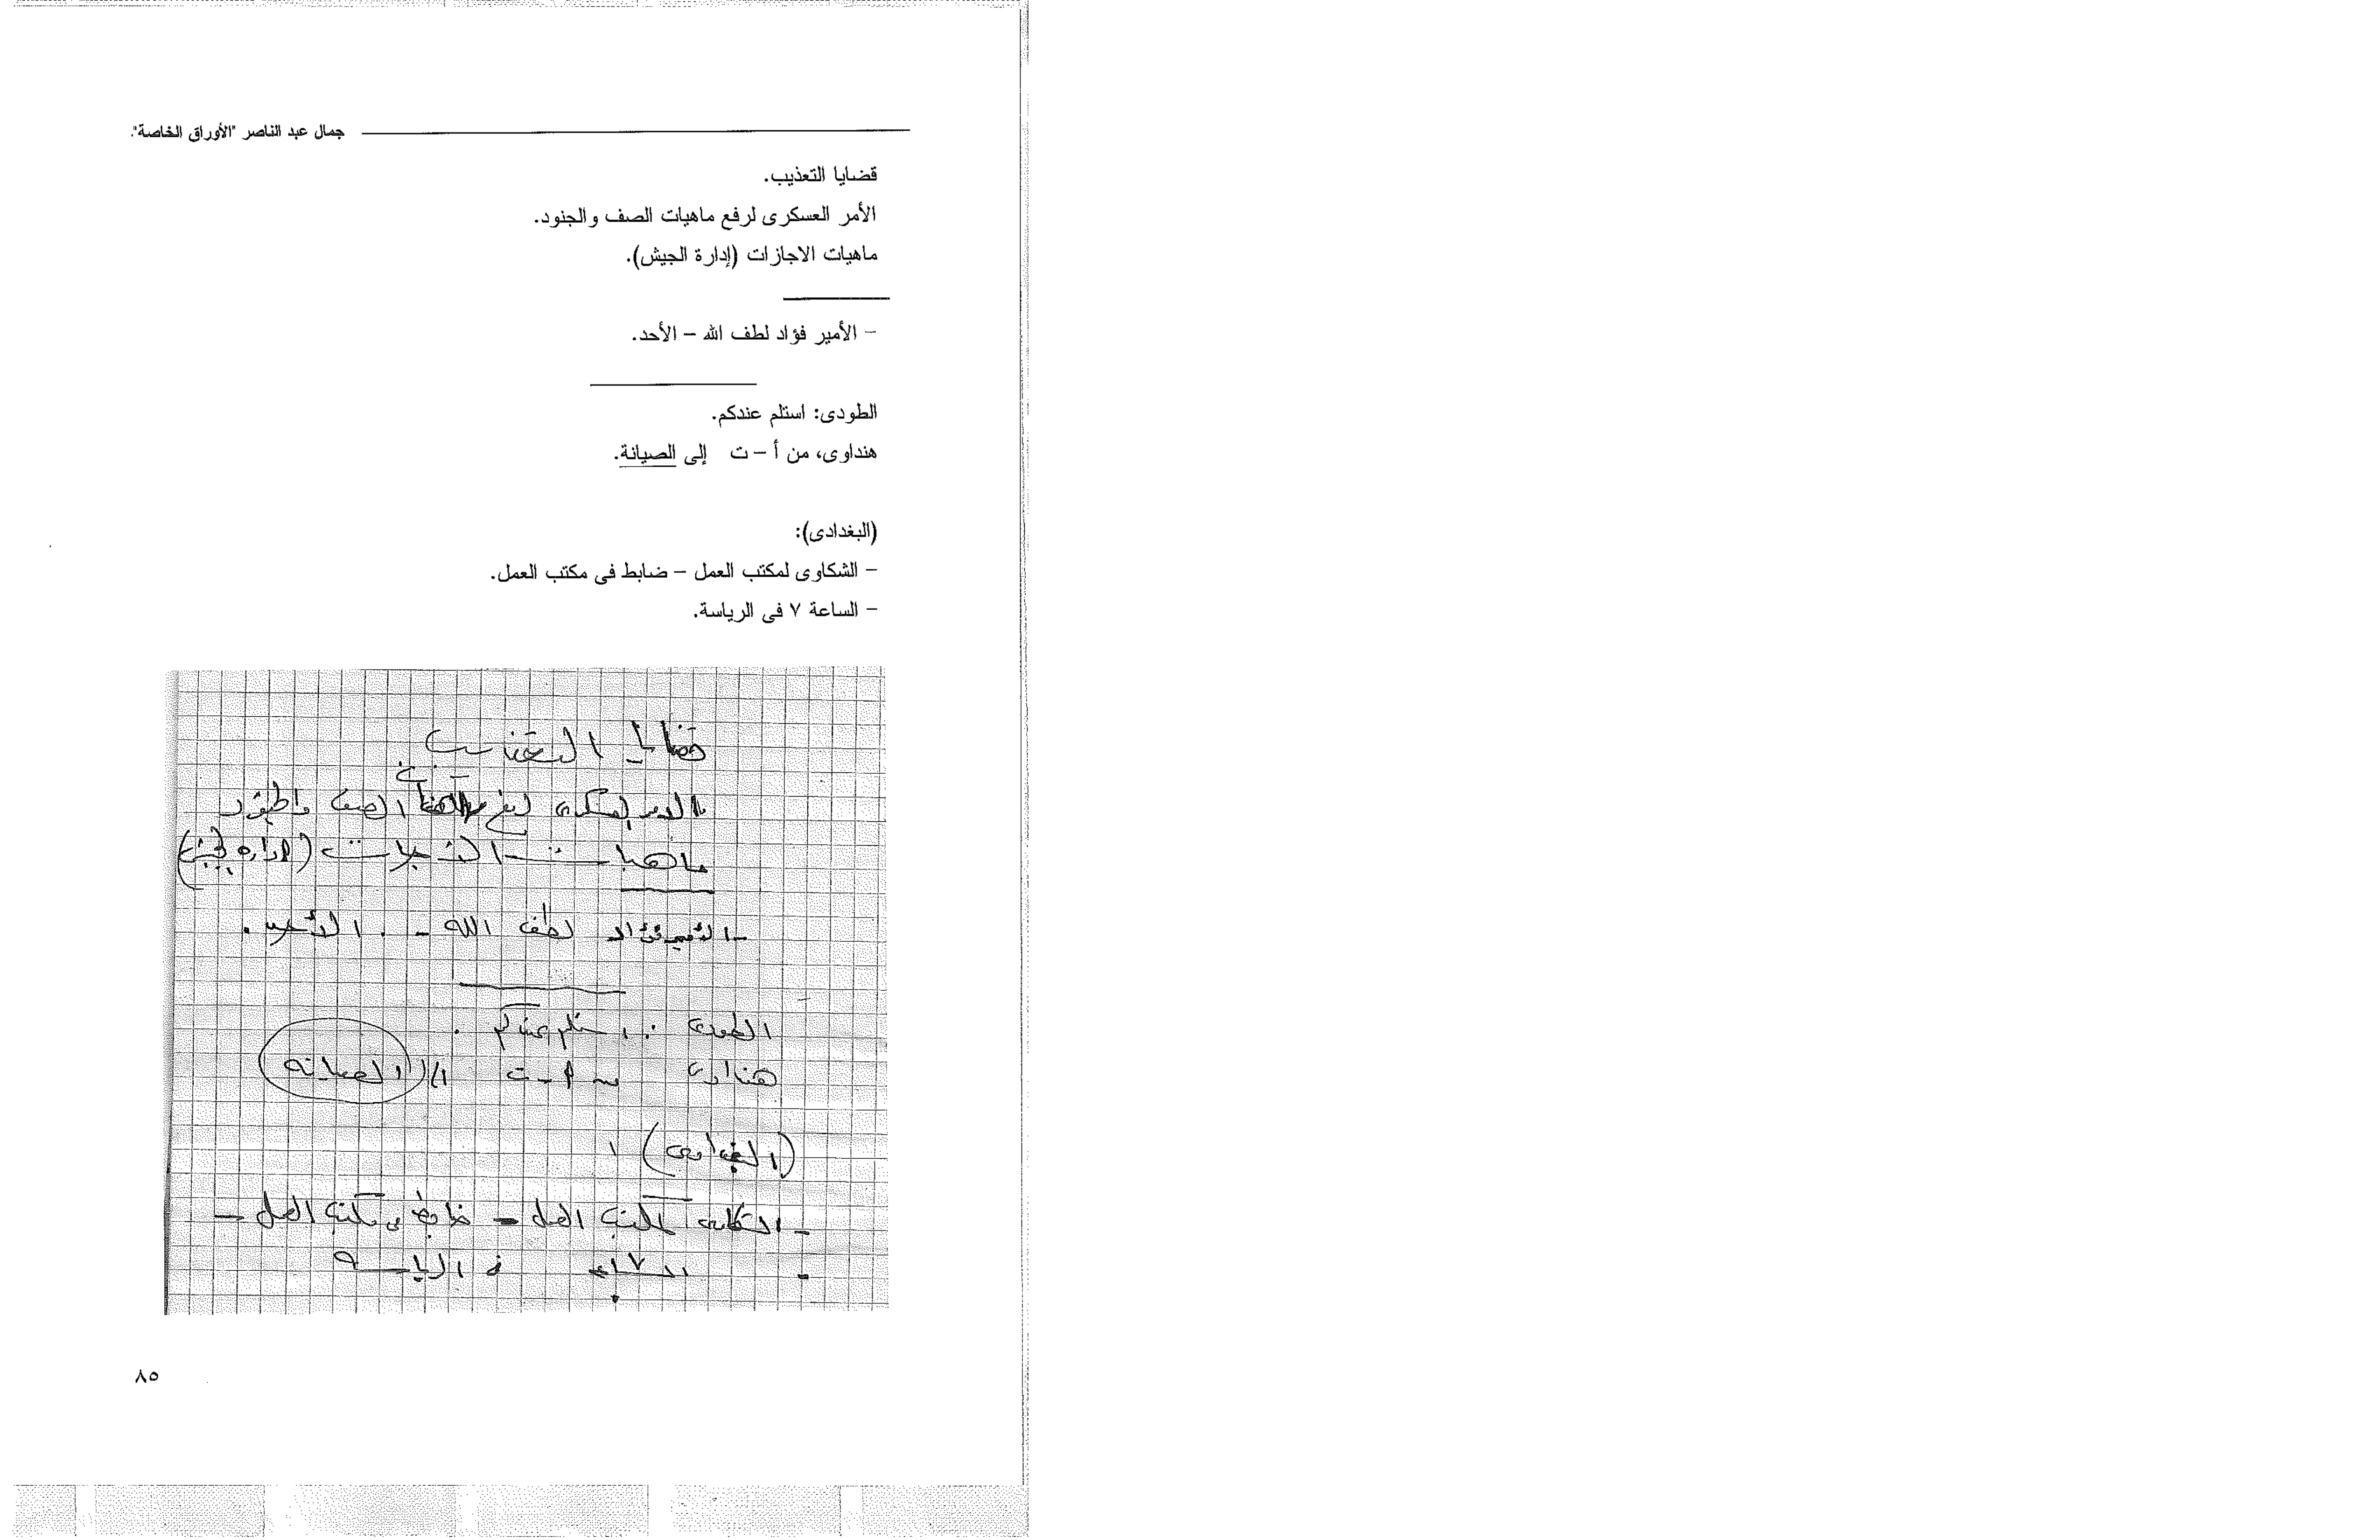 جمال عبد الناصر "الأوراق الخاصة".
قضايا التعذيب.
الأمر العسكرى لرفع ماهيات الصف والجنود.
ماهيات الاجازات (إدارة الجيش).
– الأمير فؤاد لطف الله – الأحد.
الطودى: استلم عندكم.
هنداوى، من أ – ت إلى الصيانة.
(البغدادى):
– الشكاوى لمكتب العمل – ضابط فى مكتب العمل.
– الساعة ٧ فى الرياسة.
قضايا التعذيب
الأمر العسكرى لرفع ماهيات الصف والجنود
ماهيات الاجازات (إدارة الجيش)
- الأمير فؤاد لطف الله - . الأحد .
الطودى : استلم عندكم .
هنداوى من أ - ت إلى الصيانه
(البغدادى)
- الشكاوى لمكتب العمل - ضابط فى مكتب العمل -
- الساعه ٧ فى الرياسه
٨٥